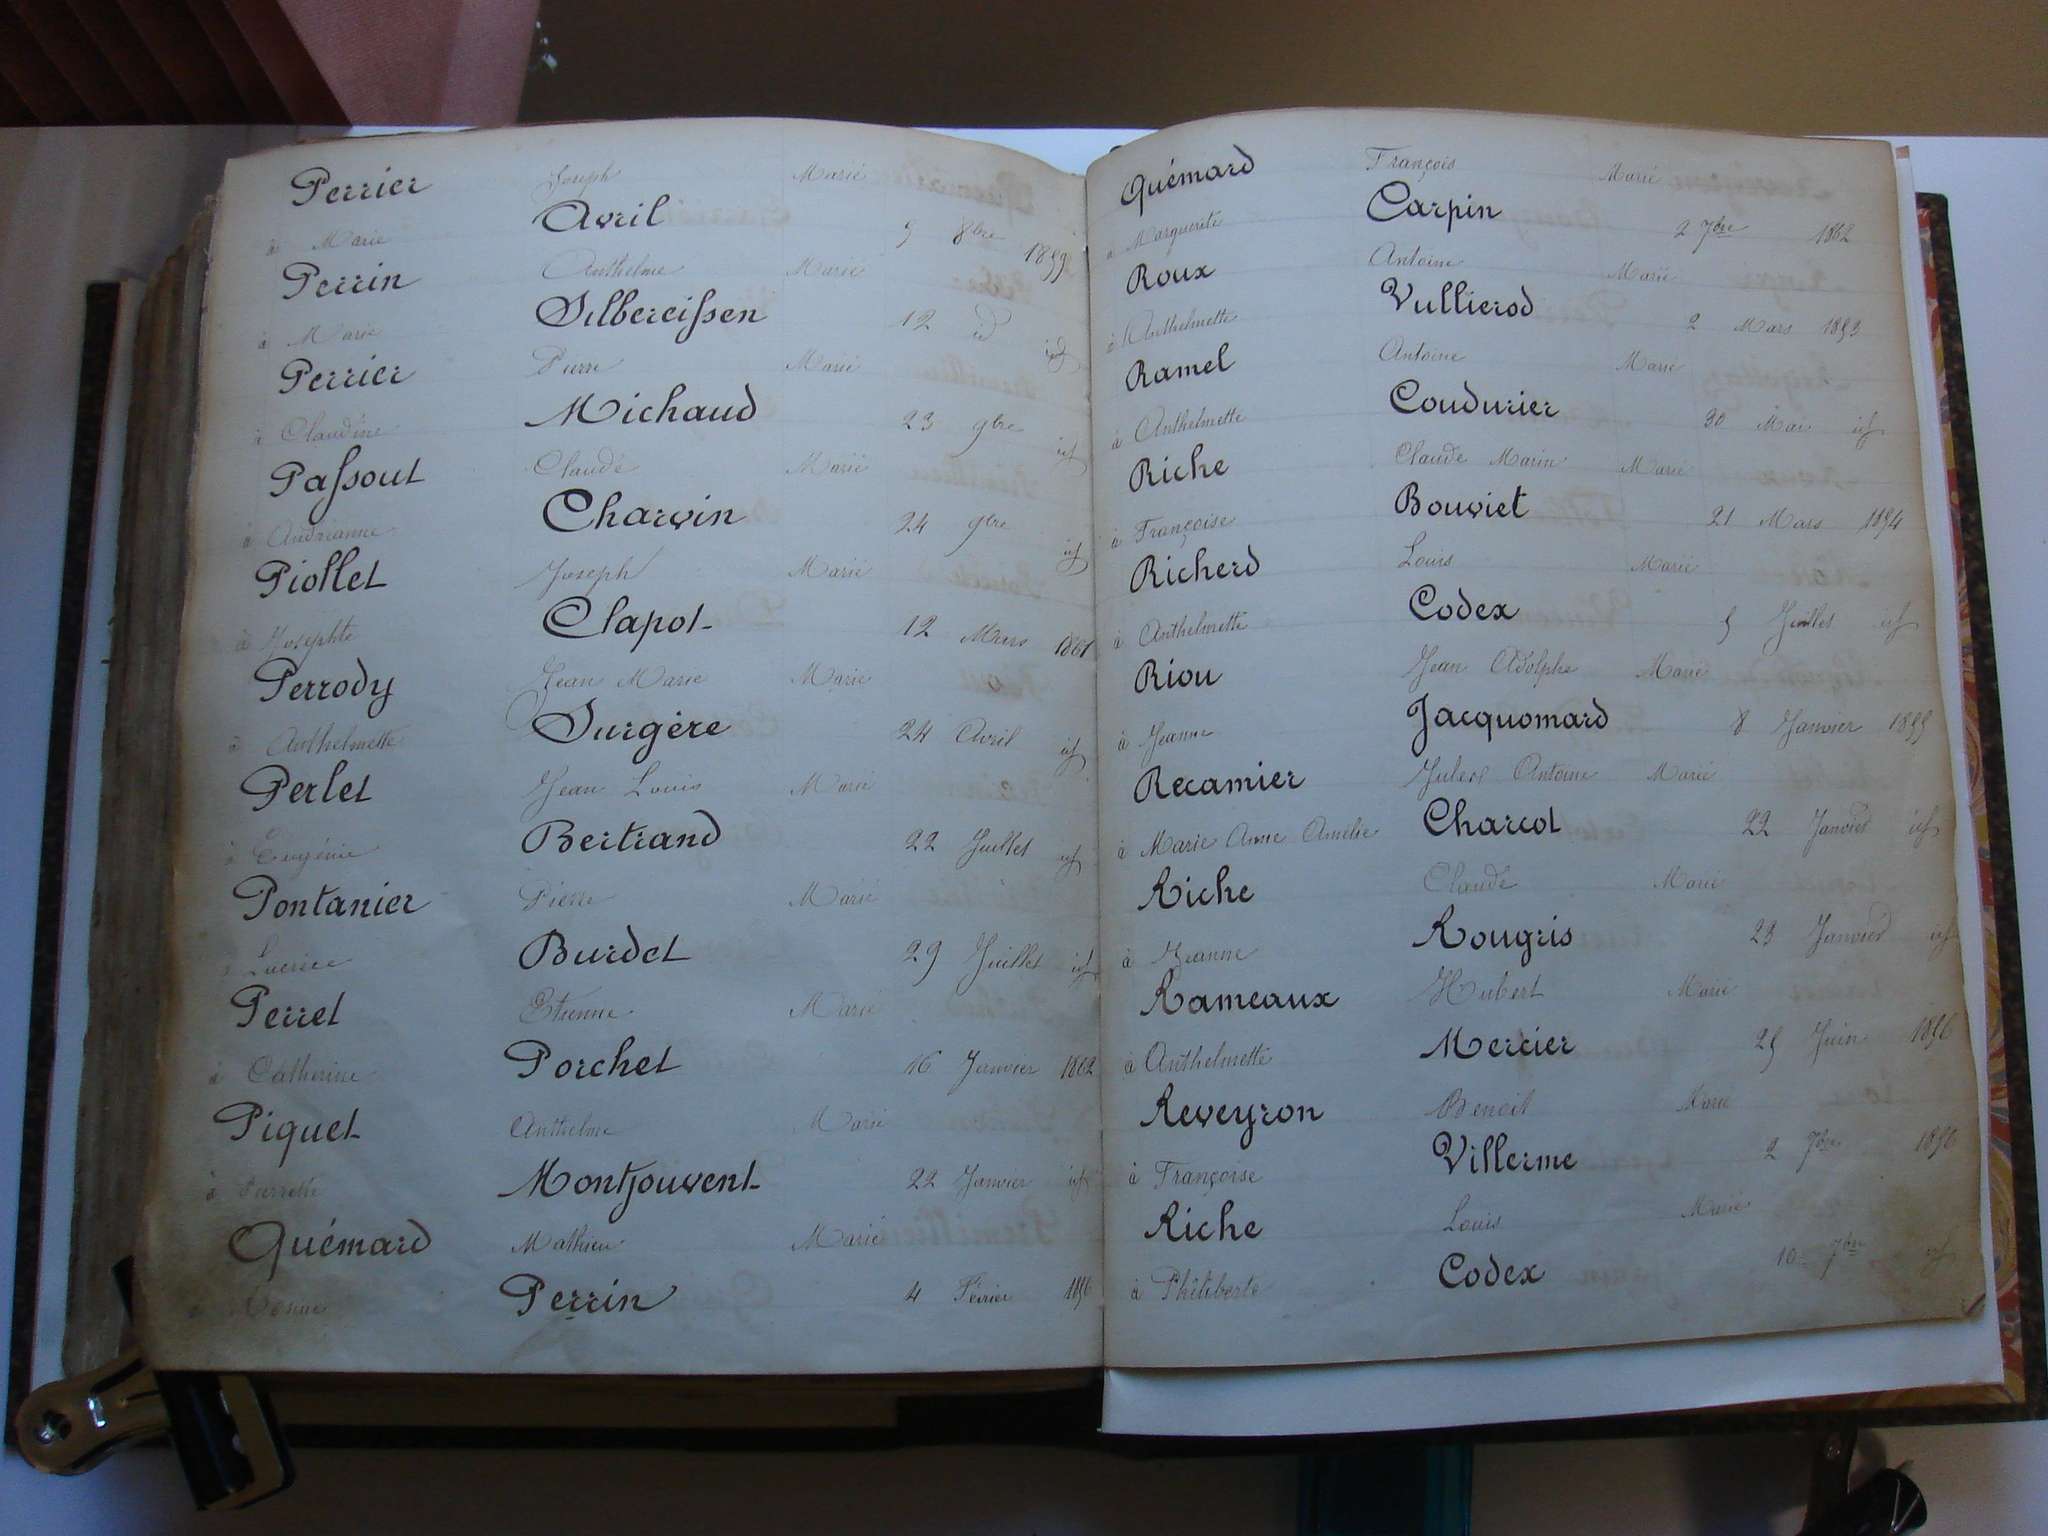 Perrier Joseph Marié
à Marie Avril 9 8bre 1859
Perrin Anthelme Marié
à Marie Silbereissen 12 id id
Perrier Pierre Marié
à Claudine Michaud 23 9bre id
Passout Claude Marié
à Andrianne Charvin 24 9bre id
Piollet Joseph Marié
à Josephte Clapot 12 Mars 1861
Perrody Jean Marie Marié
à Anthelmette Surgère 24 Avril id
Perlet Jean Louis Marié
à Eugénie Bertrand 22 Juillet id
Pontanier Pierre Marié
à Lucrèce Burdet 29 Juillet id
Perret Etienne Marié
à Catherine Porchet 16 Janvier 1862
Piquet Anthelme Marié
à Pierrette Montjouvent 22 Janvier id
Quémard Mathieu Marié
à Perrin 4 Février 1856
Quémard François Marié
à Marguerite Carpin 2 7bre 1862
Roux Antoine Marié
à Anthelmette Vullierod 2 Mars 1853
Ramel Antoine Marié
à Anthelmette Coudurier 30 Mai id
Riche Claude Marin Marié
à Françoise Bouviet 21 Mars 1854
Richerd Louis Marié
à Anthelmette Codex 5 Juillet id
Riou Jean Adolphe Marié
à Jeanne Jacquomard 8 Janvier 1855
Recamier Jules Antoine Marié
à Marie Anne Amelie Charcot 22 Janvier id
Riche Claude Marié
à Jeanne Rougris 23 Janvier id
Rameaux Hubert Marié
à Anthelmette Mercier 25 Juin 1856
Reveyron Benoit Marié
à Françoise Villerme 2 7bre 1856
Riche Louis Marié
à Philiberte Codex 10 7bre id